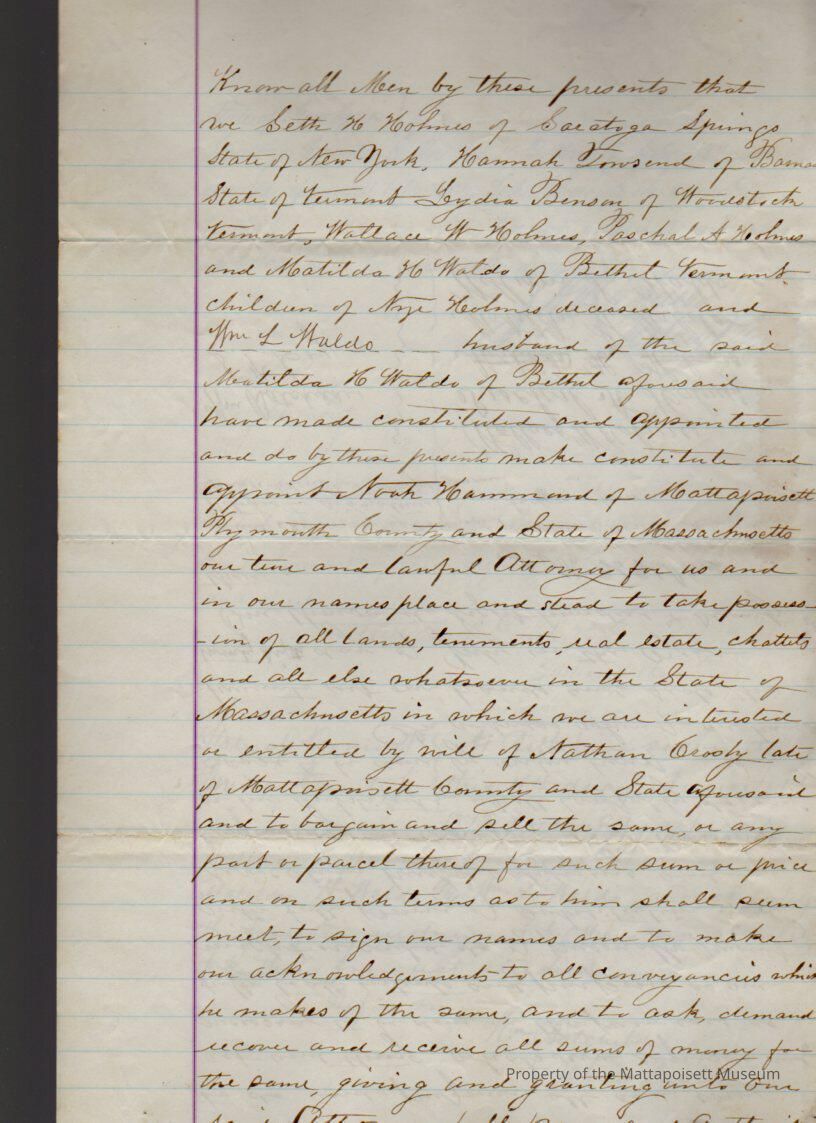 Know all Men by these presents that
we Seth H Holmes of Saratoga Springs
State of New York, Hannah Townsend of
State of Vermont Lydia Benson of Woodstock
Vermont, Wallace W Holmes, Paschal A Holmes
and Matilda H Waldo of Bethel Vermont
children of Nye Holmes deceased and
Wm L Waldo husband of the said
Matilda H Waldo of Bethel aforesaid
have made constituted and appointed
and do by these presents make constitute and
appoint Noah Hammond of Mattapoisett
Plymouth County and State of Massachusetts
our true and lawful Attorney for us and
in our names place and stead to take possess
-ion of all lands, tenements, real estate, chattels
and all else whatsoever in the State of
Massachusetts in which we are interested
or entitled by will of Nathan Crosby late
of Mattapoisett County and State aforesaid
and to bargain and sell the same, or any
part or parcel thereof for such sum or price
and on such terms as to him shall seem
meet, to sign our names and to make
our acknowledgements to all conveyances which
he makes of the same, and to ask, demand
recover and receive all sums of money for
the same, giving and granting unto our
Property of the Mattapoisett Museum